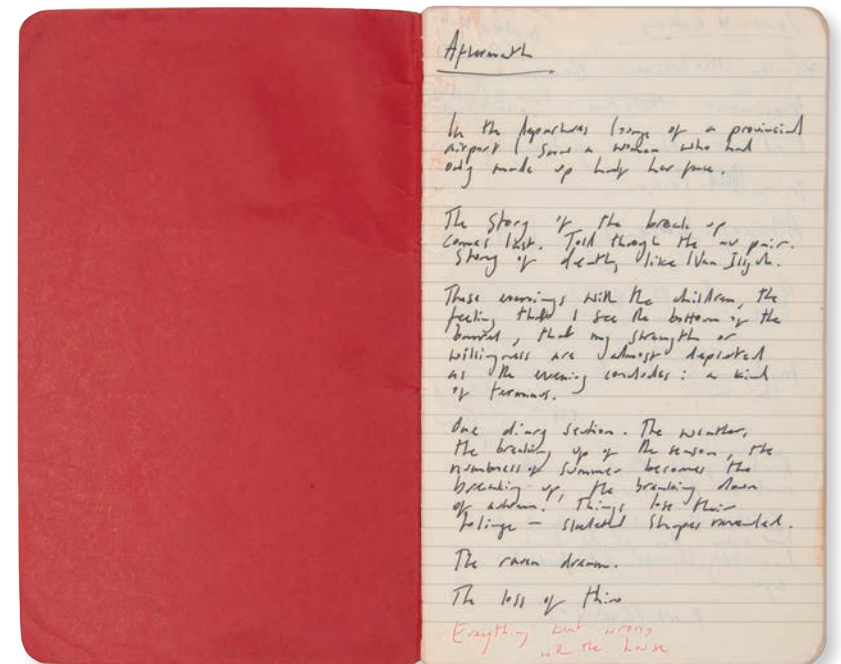 Aftermath
In the departures lounge of a provincial
airport I saw a woman who had
only made up half her face.
The story of the break up
comes last. Told through the au pair.
Story of death, like Ivan Ilych.
These evenings with the children, the
feeling that I see the bottom of the
barrel, that my strength or
willingness are almost depleted
as the evening concludes: a kind
of terminus.
One diary section. The weather,
the breaking up of the season, the
numbness of summer becomes the
breaking up, the breaking down
of autumn. Things lose their
foliage – skeletal shapes revealed.
The raven dream.
The loss of
Everything went wrong
with the house